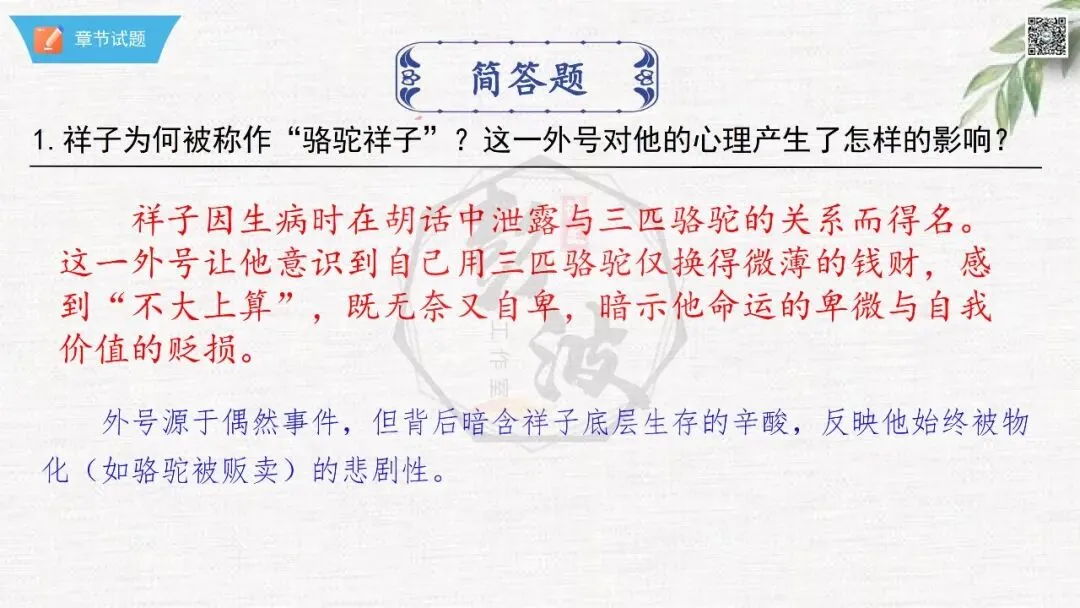 章节试题
简答题
1.祥子为何被称作“骆驼祥子”?这一外号对他的心理产生了怎样的影响?
祥子因生病时在胡话中泄露与三匹骆驼的关系而得名。
这一外号让他意识到自己用三匹骆驼仅换得微薄的钱财，感
到“不大上算”，既无奈又自卑，暗示他命运的卑微与自我
价值的贬损。
工作室
外号源于偶然事件，但背后暗含祥子底层生存的辛酸，反映他始终被物
化（如骆驼被贩卖）的悲剧性。